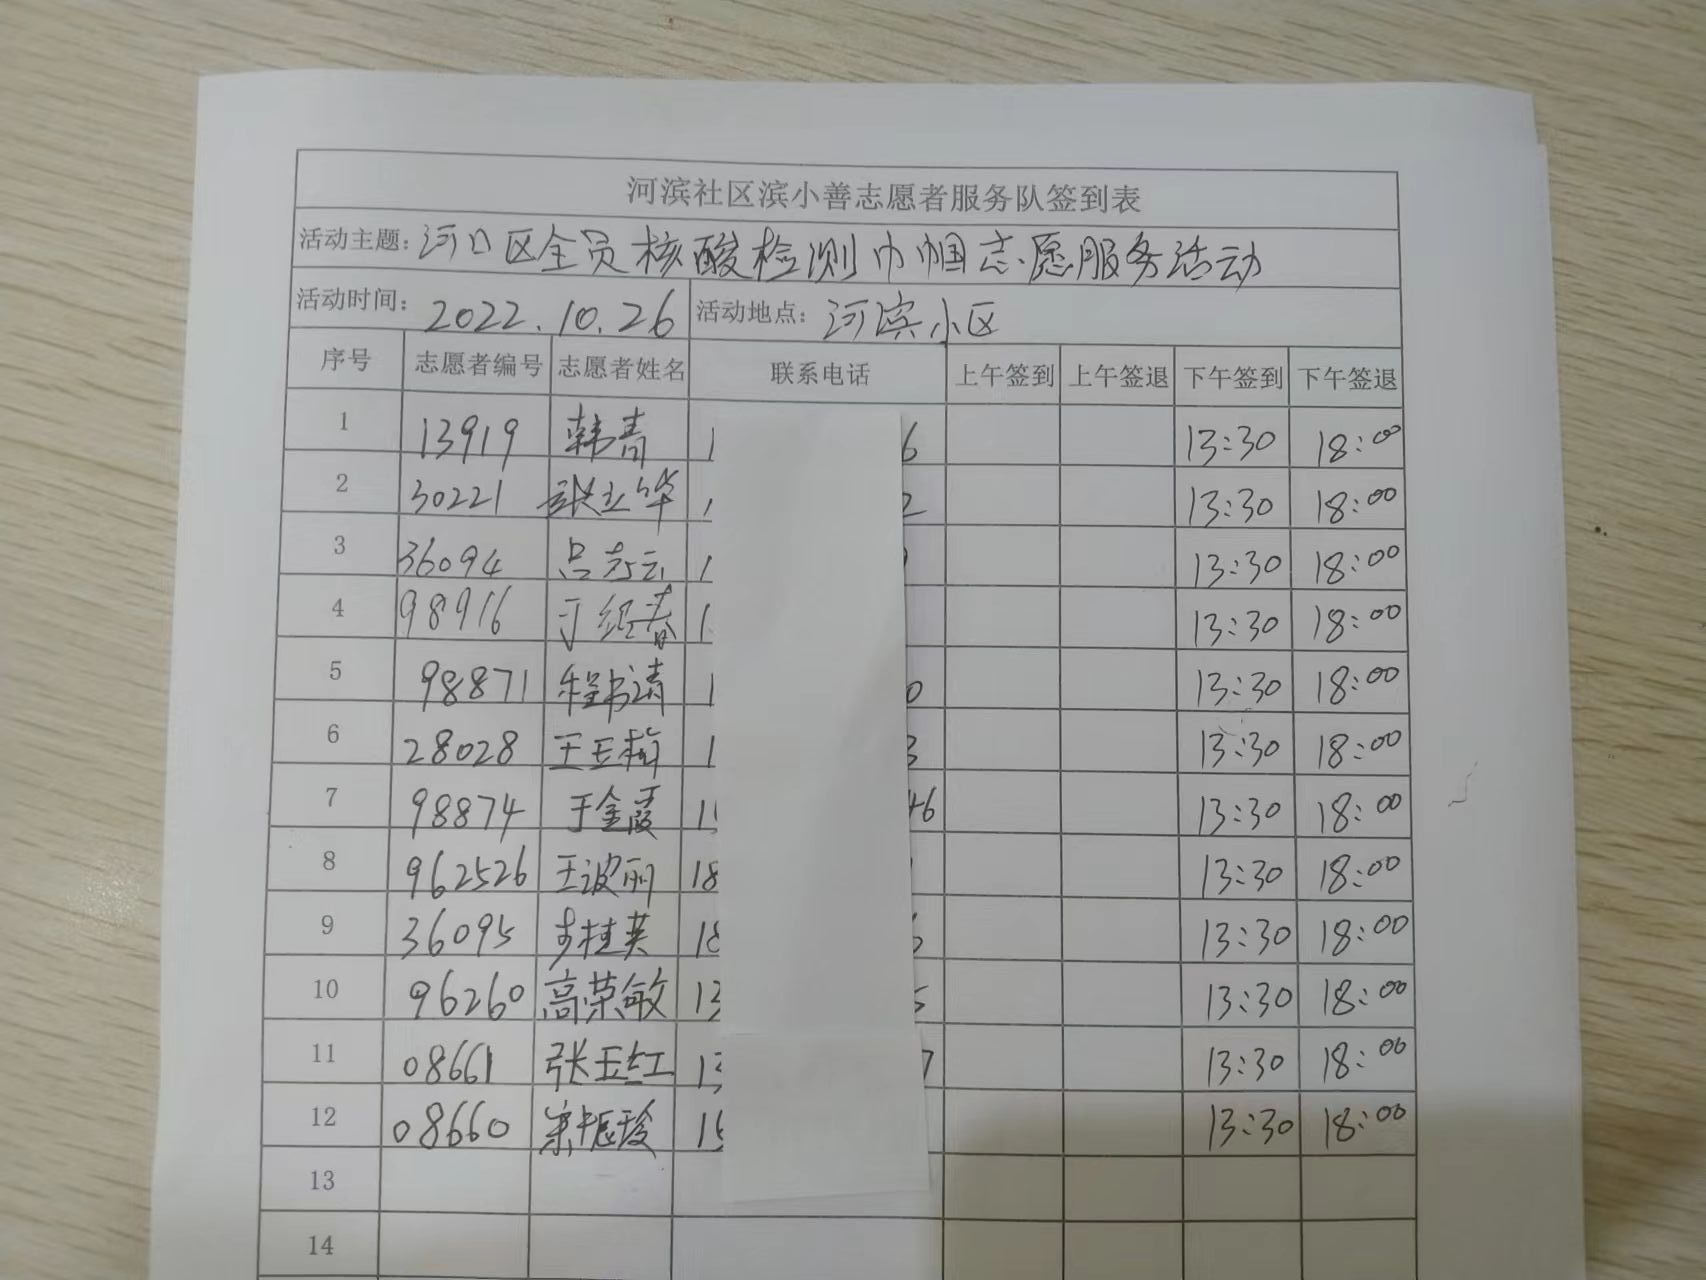 河滨社区滨小善志愿者服务队签到表
活动主题：河口区全员核酸检测巾帼志愿服务活动
活动时间：2022.10.26 活动地点：河滨小区
序号 志愿者编号 志愿者姓名 联系电话 上午签到 上午签退 下午签到 下午签退
1 13919 韩青 1 6 13:30 18:00
2 30221 张立华 1 2 13:30 18:00
3 36094 吕志云 1 13:30 18:00
4 98916 于经春 1 13:30 18:00
5 98871 程书清 1 0 13:30 18:00
6 28028 王玉梅 1 3 13:30 18:00
7 98874 于金霞 1 46 13:30 18:00
8 962526 王波丽 18 13:30 18:00
9 36095 步桂英 18 13:30 18:00
10 96260 高荣敏 13 5 13:30 18:00
11 08661 张玉红 13 7 13:30 18:00
12 08660 15 13:30 18:00
13
14